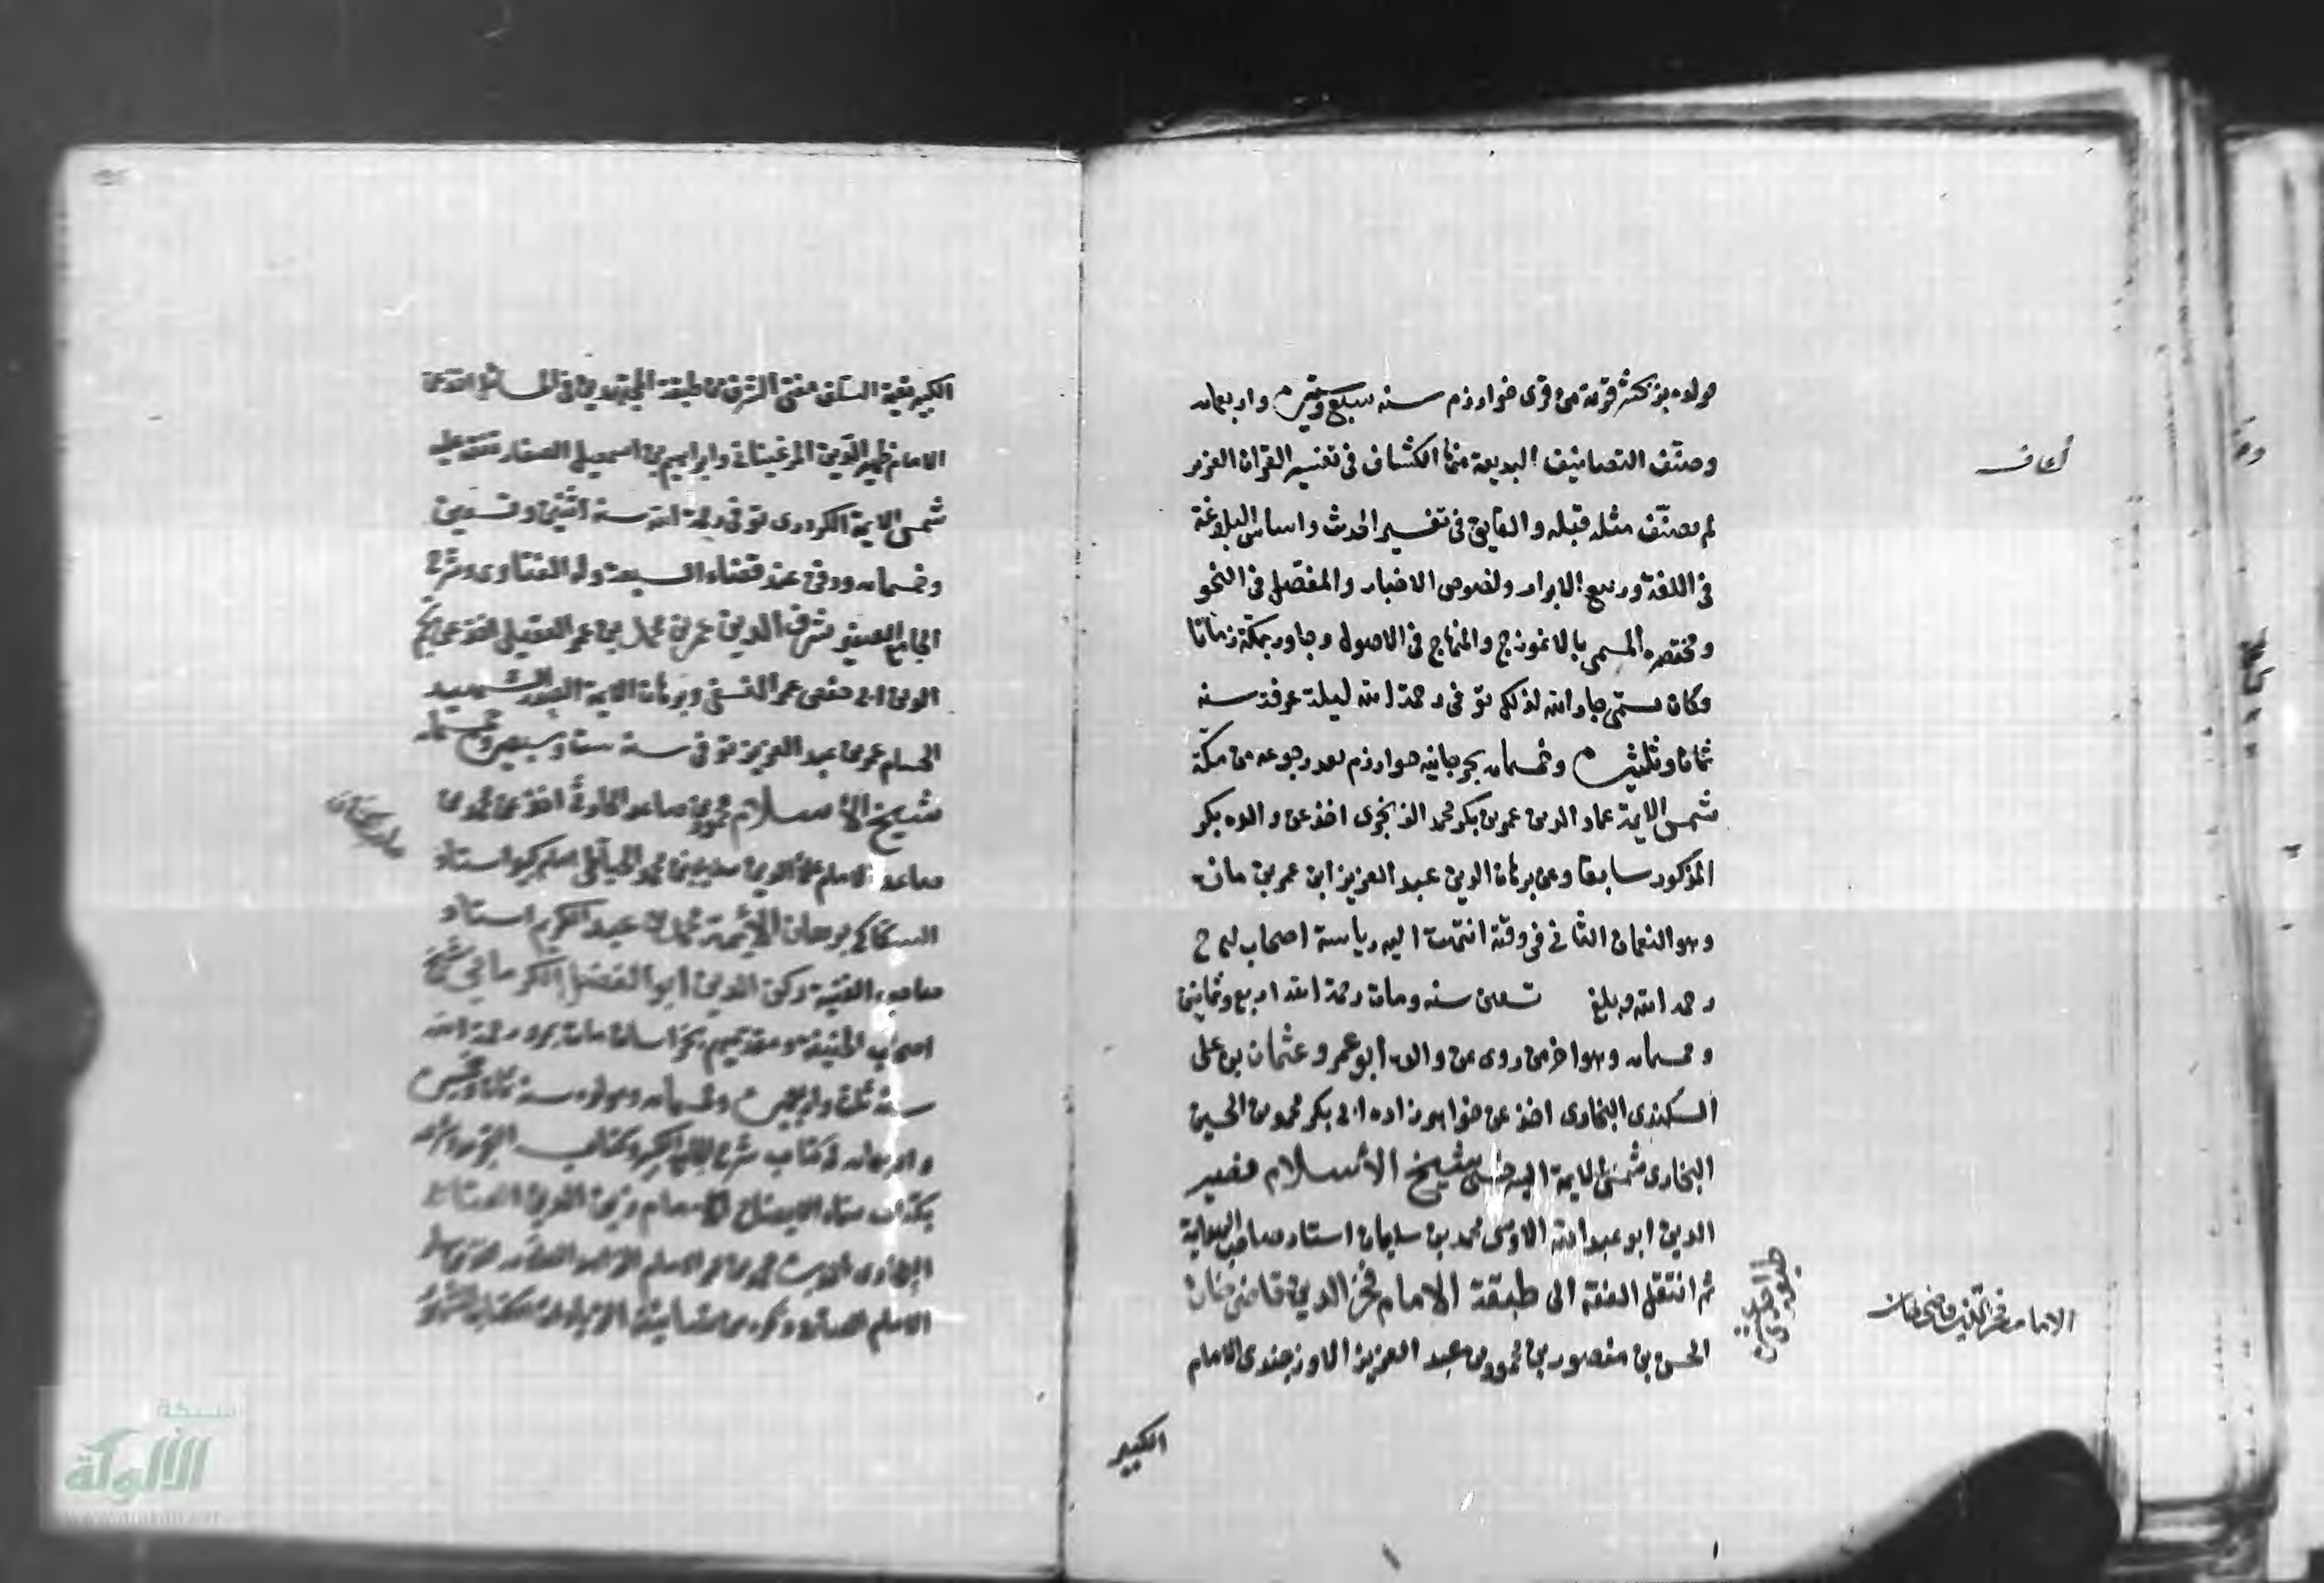 مولده بزمخشر قرية من قرى خوارزم سنه سبع وستين واربعمايه
وصنف التصانيف البديعة منها الكشاف فى تفسير القران العزيز
لم يصنف مثله قبله والفايق فى تفسير الحديث واساس البلاغة
فى اللغة وربيع الابرار ونصوص الاخبار والمفصل فى النحو
ومختصره المسمى بالانموذج والمنهاج فى الاصول وجاور بمكة زمانا
وكان يسمى جار الله لذلك توفى رحمة الله ليلة عرفة سنه
ثمان وثلثين وخمسمايه بجرجانيه خوارزم بعد رجوعه من مكة
شمس الايمة عماد الدين عمر بن بكر محمد الزرنجرى اخذ عن والده بكر
المذكور سابقا وعن برهان الدين عبد العزيز ابن عمر بن مازه
وهو النعمان الثانى فى وقته انتهت اليه رياسة اصحاب
رحمه الله وبلغ تسعين سنه ومات رحمة الله اربع وثمانين
وخمسمايه وهو اخر من روى عن والده ابو عمرو عثمان بن على
السكندى البخارى اخذ عن خواهر زاده ابى بكر محمد بن الحسين
البخارى شمس الايمة السرخسى شيخ الأسلام نصير
الدين ابو عبد الله الاوسى محمد بن سليمان استاد صاحب الهداية
ثم انتقل الفقه الى طبقة الامام فخر الدين قاضى خان
الحسن بن منصور بن محمود بن عبد العزيز الاوزجندى الامام
الامام فخر الدين قاضى خان
الكبير
الكبير بقية السلف مفتى الشرق من طبقة المجتهدين فى المسائل اخذ عن
الامام ظهير الدين المرغينانى وابراهيم بن اسمعيل الصفار تفقه عليه
شمس الايمة الكردرى توفى رحمة الله سنه اثنتين وتسعين
وخمسمايه ودفن عند قضاة السبعة وله الفتاوى وشرح
الجامع الصغير شرف الدين عمر بن محمد بن عمر العقيلى اخذ عن نجم
الدين ابى حفص عمر النسفى وبرهان الايمة الصدر الشهيد
الحسام عمر بن عبد العزيز توفى سنه ست وسبعين وخمسمايه
شيخ الأسلام محمود بن صاعد الحارثى اخذ عن محمد بن
صاعد الامام علاء الدين سديد بن محمد الحياطى امام كبير استاد
السكاكى برهان الأئمة محمد بن عبد الكريم استاد
صاحب القنية ركن الدين ابو الفضل الكرمانى شيخ
اصحاب الحنيفة ومقدمهم بخراسان مات بمرو رحمة الله
سنه ثلث واربعين وخمسمايه ومولده سنه
واربعمايه له كتاب شرح الجامع الكبير وكتاب التجريد وشرحه
بكتاب سماه الايضاح الامام زين الدين